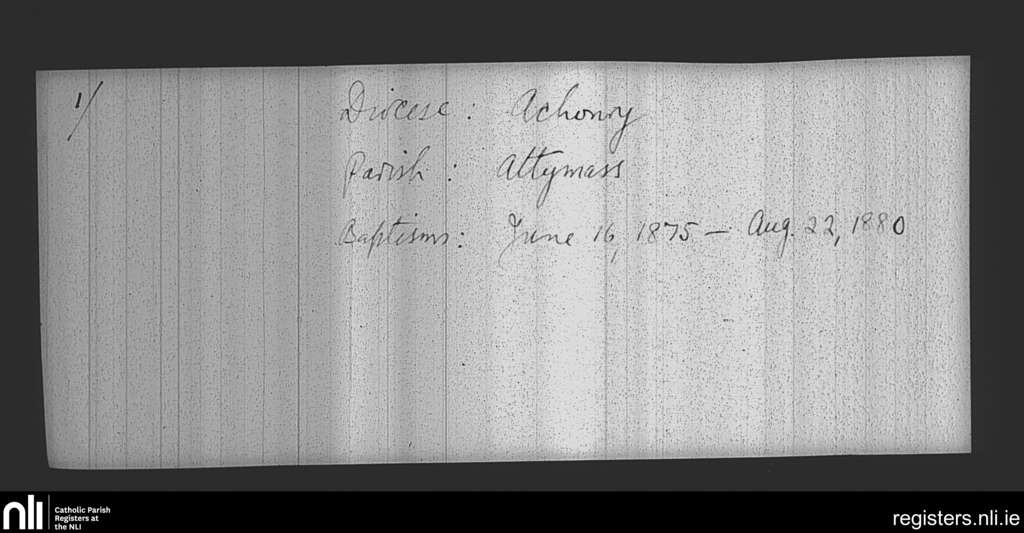 1/
Diocese: Achonry
Parish: Attymass
Baptisms: June 16, 1875 — Aug. 22, 1880
nli
Catholic Parish
Registers at
the NLI
registers.nli.ie